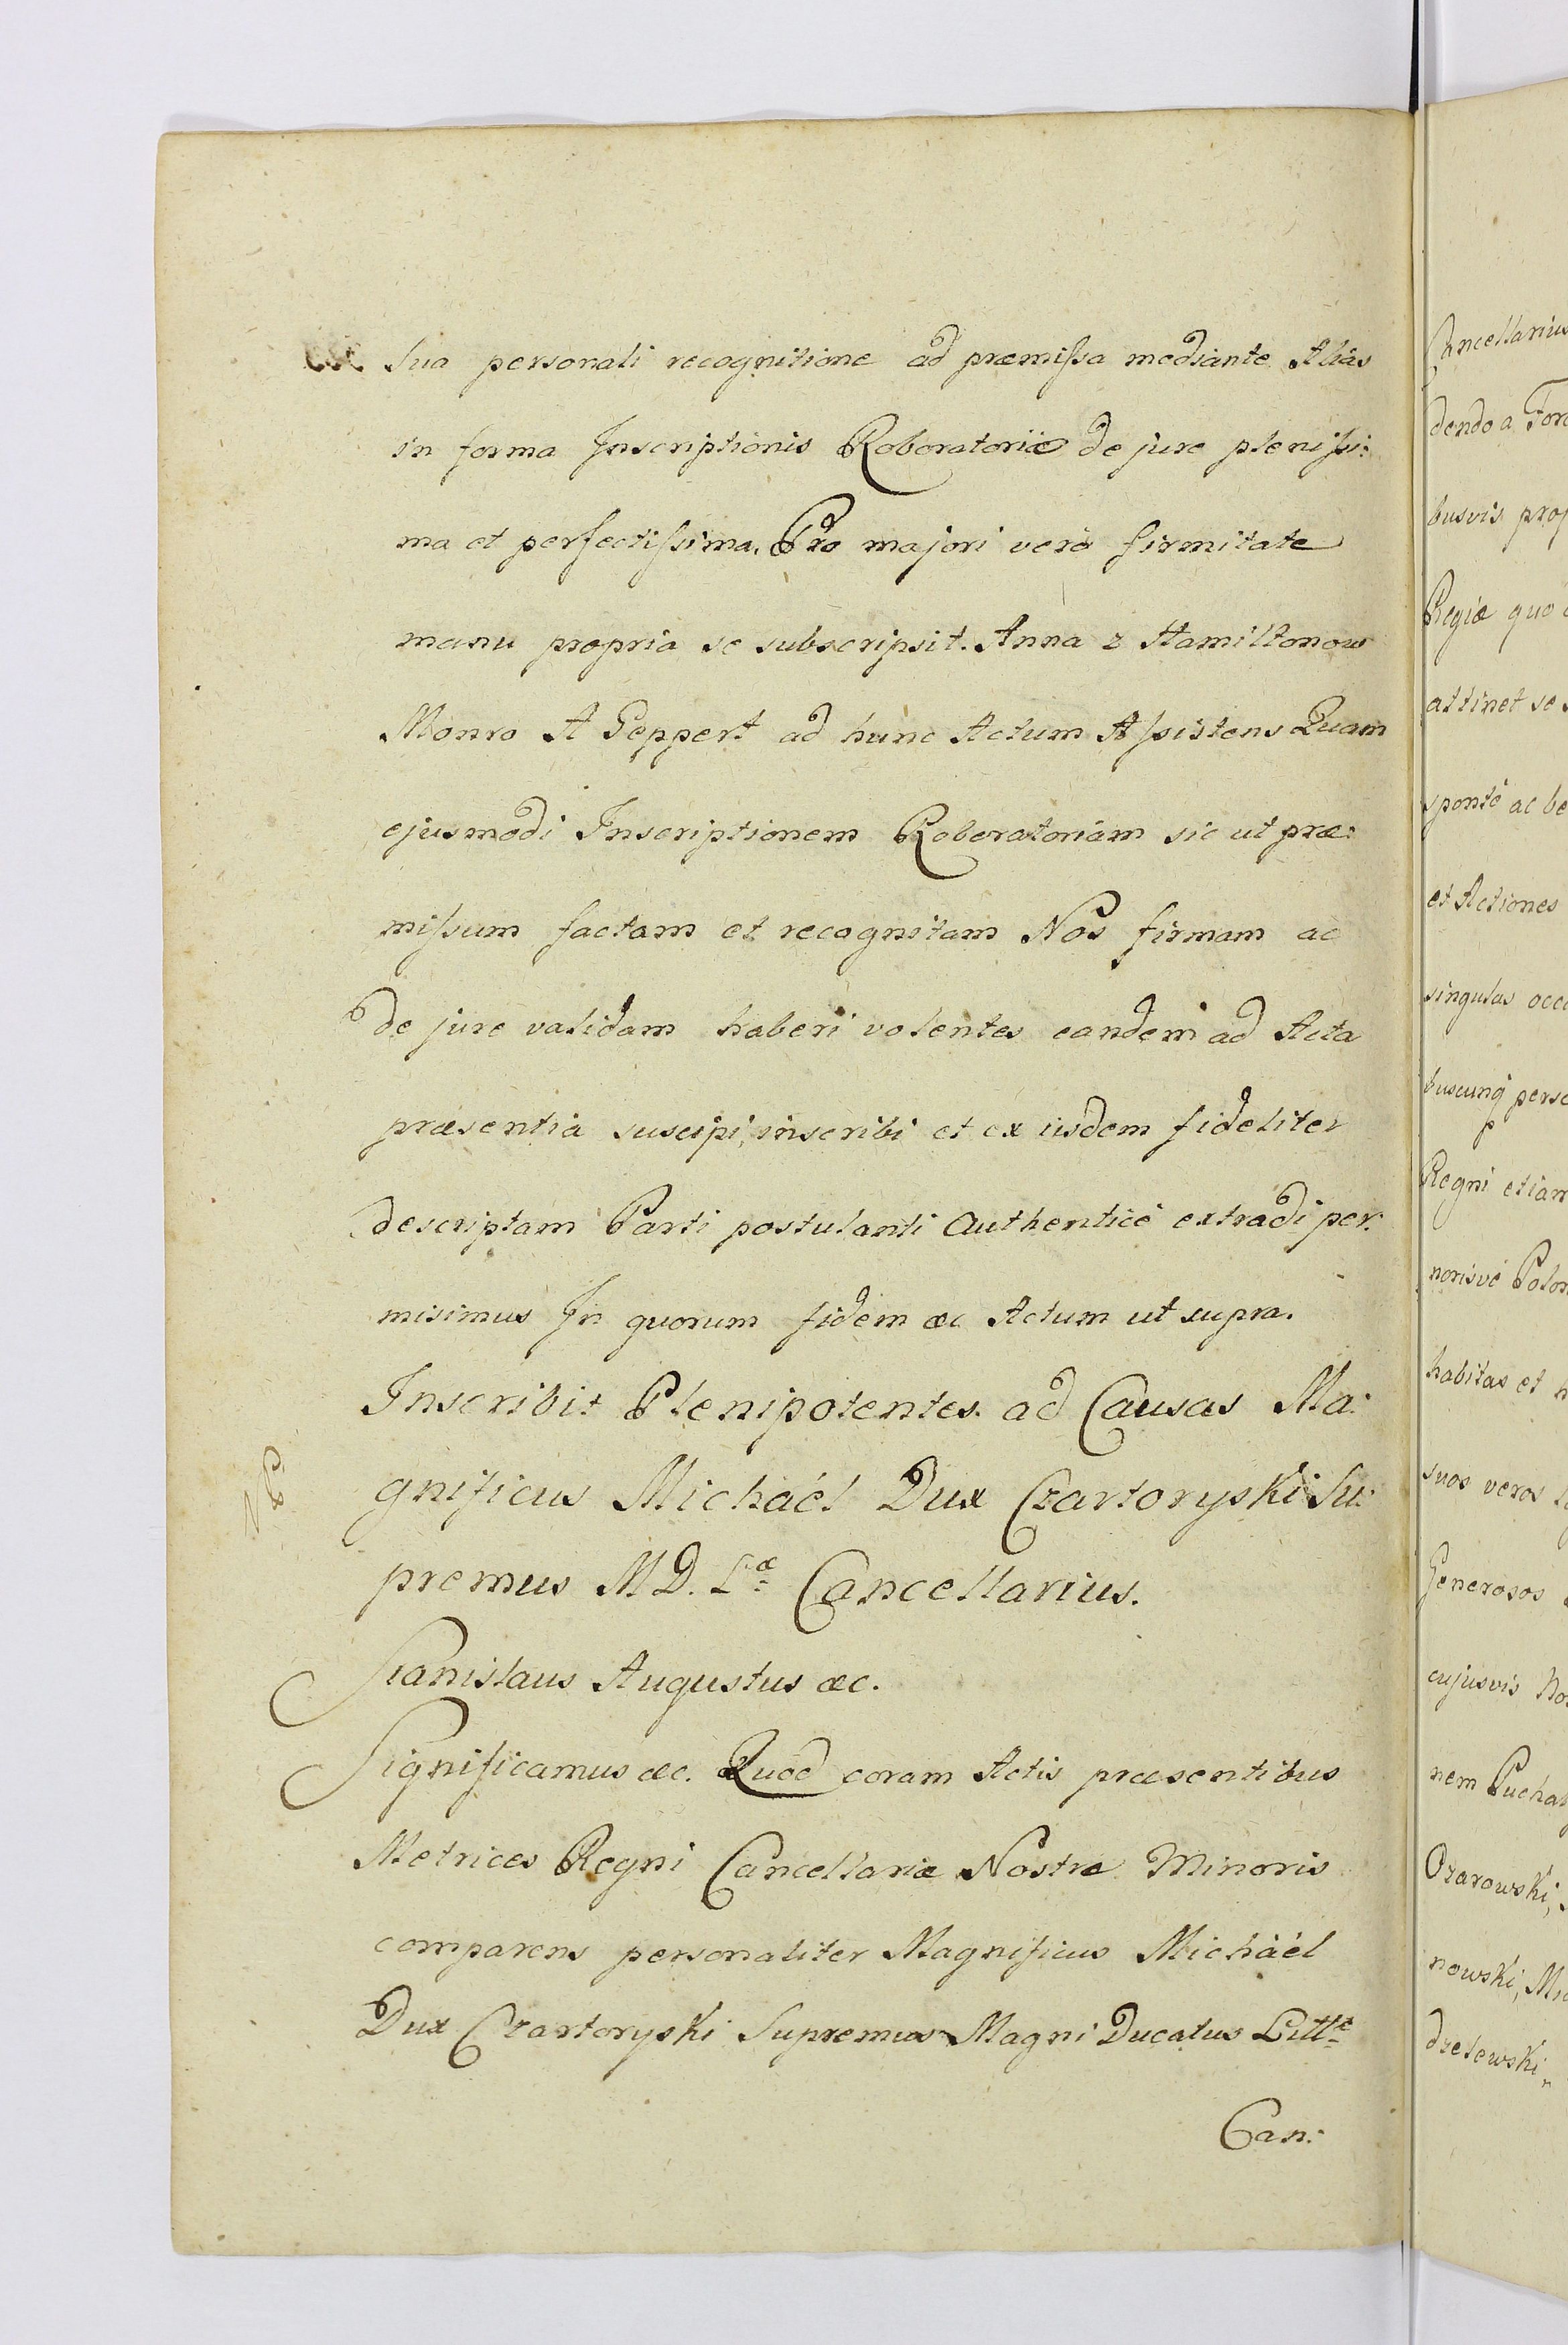 Sua personali recognitione ad præmissa mediante Aliàs
in forma Inscriptionis Roboratoriæ de jure plenissi:
ma et perfectissima. Pro majori verò firmitate
manu propria se subscripsit. Anna z Hamiltonow
Monro A Geppert ad hunc Actum Assistens Quam
ejusmodi Inscriptionem Roboratoriam sic ut præ:
missum factam et recognitam Nos firmam ac
de jure validam haberi volentes eandem ad Acta
præsentia suscipi, inscribi et ex iisdem fideliter
descriptam Parti postulanti authenticè extradi per:
misimus In quorum fidem &c Actum ut supra.
Inscribit Plenipotentes ad Causas Ma:
gnificus Michaél Dux Czartoryski Su:
premus M D. L.æ Cancellarius.
Stanislaus Augustus &c.
Significamus &c. Quod coram Actis præsentibus
Metrices Regni Cancellariæ Nostræ Minoris
comparens personaliter Magnificus Michaél
Dux Czartoryski Supremus Magni Ducatus Litt.æ
Can:
Cancellarius
dendo a Foro
busvis prop
Regiæ quo
attinet se
spontè ac be
et Actiones
singulas occ
buscunq perso
Regni etiam
norisvè Polon
habitas et
suos veros
Generosos
cujusvis
nem Puchal
Ozarowski,
nowski, Mi
dzelewski,